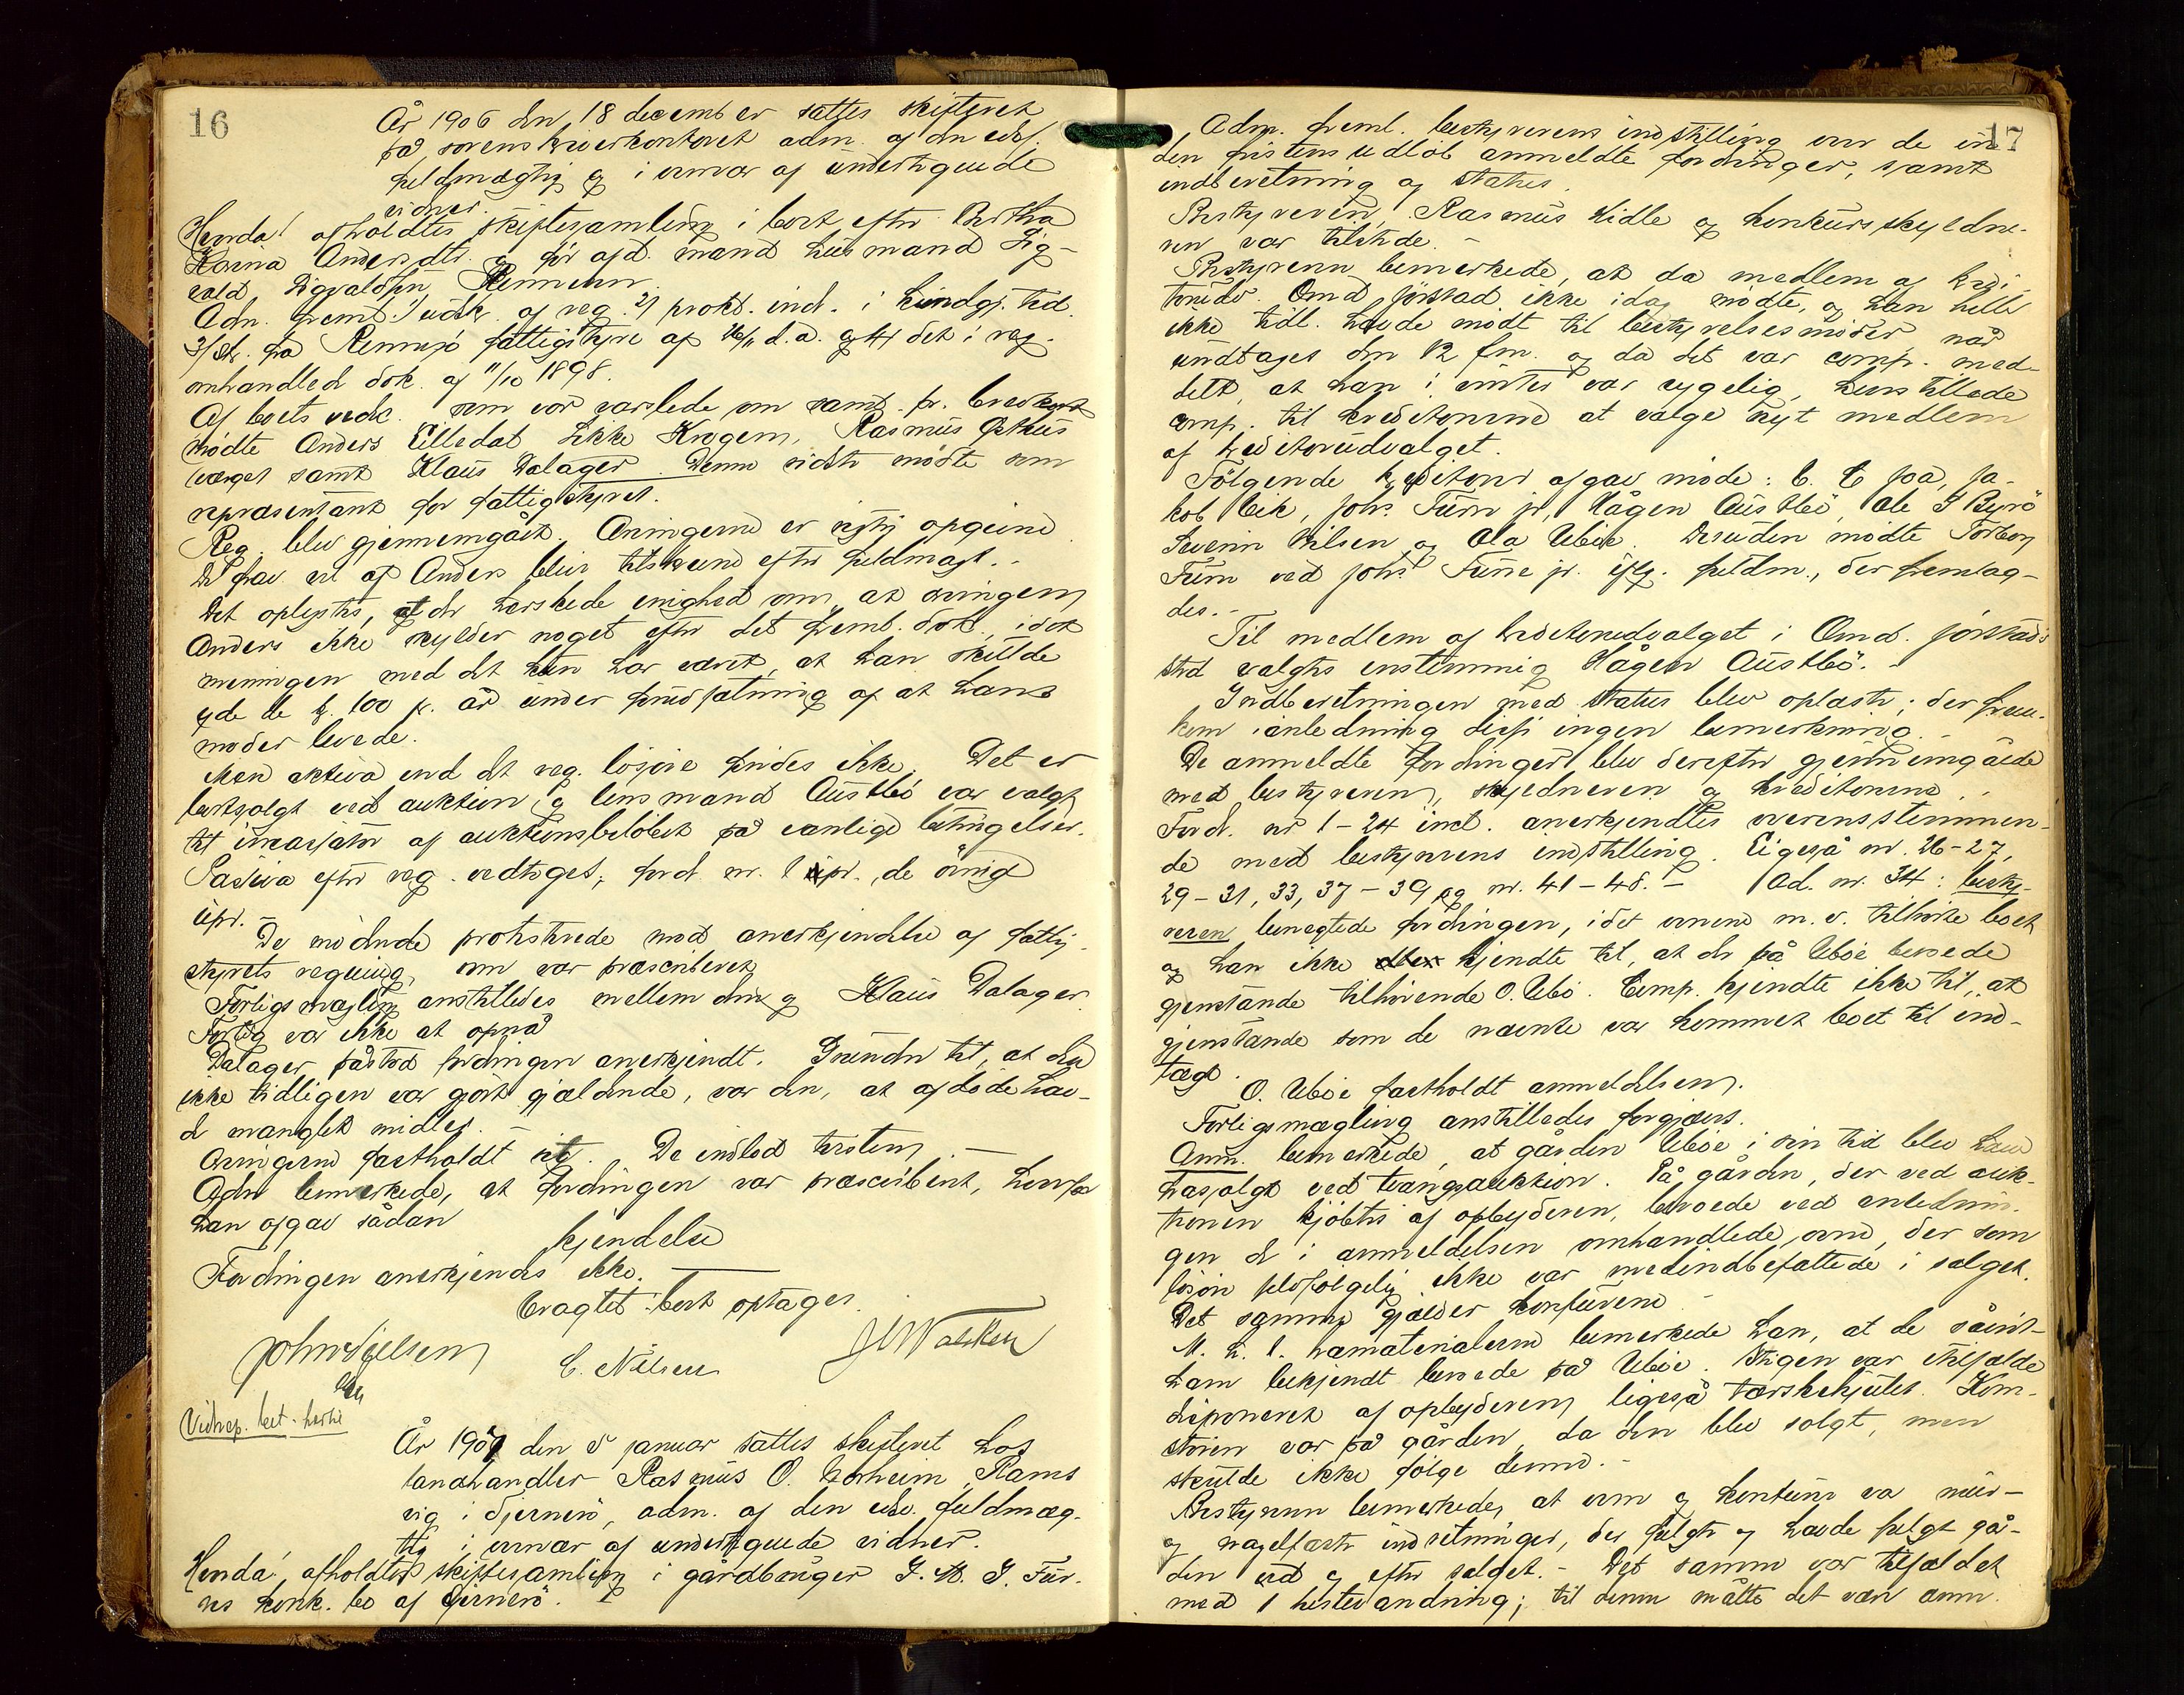 16
År 1906 den 18 december sattes skifteret
på sorenskriverkontoret adm. af den edsf.
fuldmægtig og i overvær af undertegnede
vidner.
Hvorda! afholdtes skiftesamling i boet efter Bertha
Karina Andersdtr. og før afd. mand husmand Sig-
vald Sigvaldsen Rennesø.
Adm. freml. 1) udskr. af reg. 2) prokl. ind. i kundgj. tid.
3/ skr. fra Rennesø fattigstyre af 26/11 d.a. og 4) det i reg.
omhandlede dok. af 11/10 1898.
Af boets vedk. som var varslede om saml. pr. brevkort
mødte Anders Lilledal, Rasmus Østhus
(værge) samt Klaus Dalager. Denne sidste mødte som
repræsentant for fattigstyret.
Reg. blev gjennemgået. Arvingerne er rigtig opgivne.
af Anders blir efter fuldmagt. -
Det oplystes, at der herskede enighed om, at arvingen
Anders ikke skylder noget efter det freml. dok., idet
meningen med det kun har været, at han skulde
yde de kr. 100 pr. år under forudsætning af at hans
moder levede.
Mer aktiva end det reg. løsøre findes ikke. Det er
bortsolgt ved auktion og lensmand Austbø var valgt
til incassator af auktionsbeløbet på vanlige betingelser.
Pasiva efter reg. vedtoges; ford. nr. 1 pr., de øvrige
upr. -
De mødende protesterede mod anerkjendelse af fattig-
styrets regning, som var præscriberet.
Forligsmægling anstilledes mellem dem og Klaus Dalager.
Forlig var ikke at opnå
Dalager påstod fordringen anerkjendt. Grunden til, at den
ikke tidligere var gjort gjældende, var den, at afdøde hav-
de manglet midler. -
Arvingerne fastholdt sit. De indlod tvisten. -
Adm. bemerkede, at fordringen var præscriberet, hvorfor
han afgav sådan
kjendelse
Fordringen anerkjendes ikke.
Oragtet boet optages.
John Njelsen C. Nilsen
Vidnep. bet. hertil
År 1907 den 5 januar sattes skifteret hos
landhandler Rasmus O. Norheim, Rams
vig i Sjernerø, adm. af den edsv. fuldmæg-
tig i overvær af undertegnede vidner.
Hvorda! afholdtes skiftesamling i gårdbruger J. M. J. Fur-
res konk. bo af Sjernerø.
17
Adm. freml. bestyrerens indstilling om de in-
den fristens udløb anmeldte fordringer, samt
indberetning og status.
Bestyreren, Rasmus Hidle og konkursskyldne-
ren var tilstede. -
Bestyreren bemerkede, at da medlem af kredi-
torudv. Omd. Jørstad ikke idag mødte, og han heller
ikke tidl. havde mødt til bestyrelsesmøder når
undtages den 12 fm. og da det var comp. med-
delt, at han i vinter var sygelig, henstillede
comp. til kreditorerne at vælge nyt medlem
af kreditorudvalget.
Følgende kreditorer afgav møde: C. C. Joa, Ja-
kob Eik, Johs. Furre jr, Hågen Austbø, Ole J Byrø
Severin Nilsen og Ola Ubøe. Desuden mødte Torborg
Furre ved Johs. Furre jr. iflg. fuldm., der fremlag-
des. -
Til medlem af kreditorudvalget i Omd. Jørstads
sted valgtes enstemmig Hågen Austbø. -
Indberetningen med status blev oplæst; der frem-
kom i anledning disse ingen bemerkning.
De anmeldte fordringer blev derefter gjennemgåede
med bestyreren, skyldneren og kreditorerne. -
Ford. nr 1 - 24 incl. anerkjendtes overensstemmen-
de med bestyrerens indstilling. Ligeså nr. 26 - 27,
29 - 31, 33, 37 - 39 og nr. 41 - 48. - Ad. nr. 34: besty-
reren benegtede fordringen, idet ovnene m. v. tilhørte boet
og han ikke kjendte til, at der på Ubøe beroede
gjenstande tilhørende O. Ubø. Comp. kjendte ikke til, at
gjenstande som de nævnte var kommet boet til ind-
tægt.
O. Ubøe fastholdt anmeldelsen.
Forligsmægling anstilledes forgjæves.
Anm. bemerkede, at gården Ubøe i sin tid blev ham
frasolgt ved tvangsauktion. På gården, der ved auk-
tionen kjøbtes af opbyderen, beroede ved anlednin-
gen de i anmeldelsen omhandlede ovne, der som
løsøre selvfølgelig ikke var medindbefattede i salget.
Det samme gjælder komfurerne. -
M. h. t. bemerkede han, at de såvidt
ham bekjendt beroede på Ubøe. Stigen var ihvfalde
disponeret af opbyderen, ligeså tærskehjulet. Kom-
skulde ikke følge denne. -
Bestyreren bemerkede, at ovne og komfurer var mur-
og nagelfaste indretninger, der fulgte og havde fulgt går-
den ved og efter salget. - Det samme var tilfældet
med 1 hestevandring; til denne måtte det være anm.